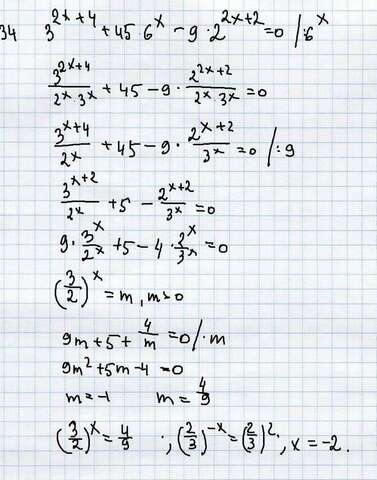 34 3^{2x+4} + 45·6^x - 9·2^{2x+2} = 0 /:6^x
\frac{3^{2x+4}}{2^x·3^x} + 45 - 9·\frac{2^{2x+2}}{2^x·3^x} = 0
\frac{3^{x+4}}{2^x} + 45 - 9·\frac{2^{x+2}}{3^x} = 0 /:9
\frac{3^{x+2}}{2^x} + 5 - \frac{2^{x+2}}{3^x} = 0
9·\frac{3^x}{2^x} + 5 - 4·\frac{2^x}{3^x} = 0
(\frac{3}{2})^x = m, m>0
9m + 5 + \frac{4}{m} = 0 /·m
9m^2 + 5m - 4 = 0
m = -1 m = \frac{4}{9}
(\frac{3}{2})^x = \frac{4}{9} ; (\frac{2}{3})^{-x} = (\frac{2}{3})^2, x = -2.